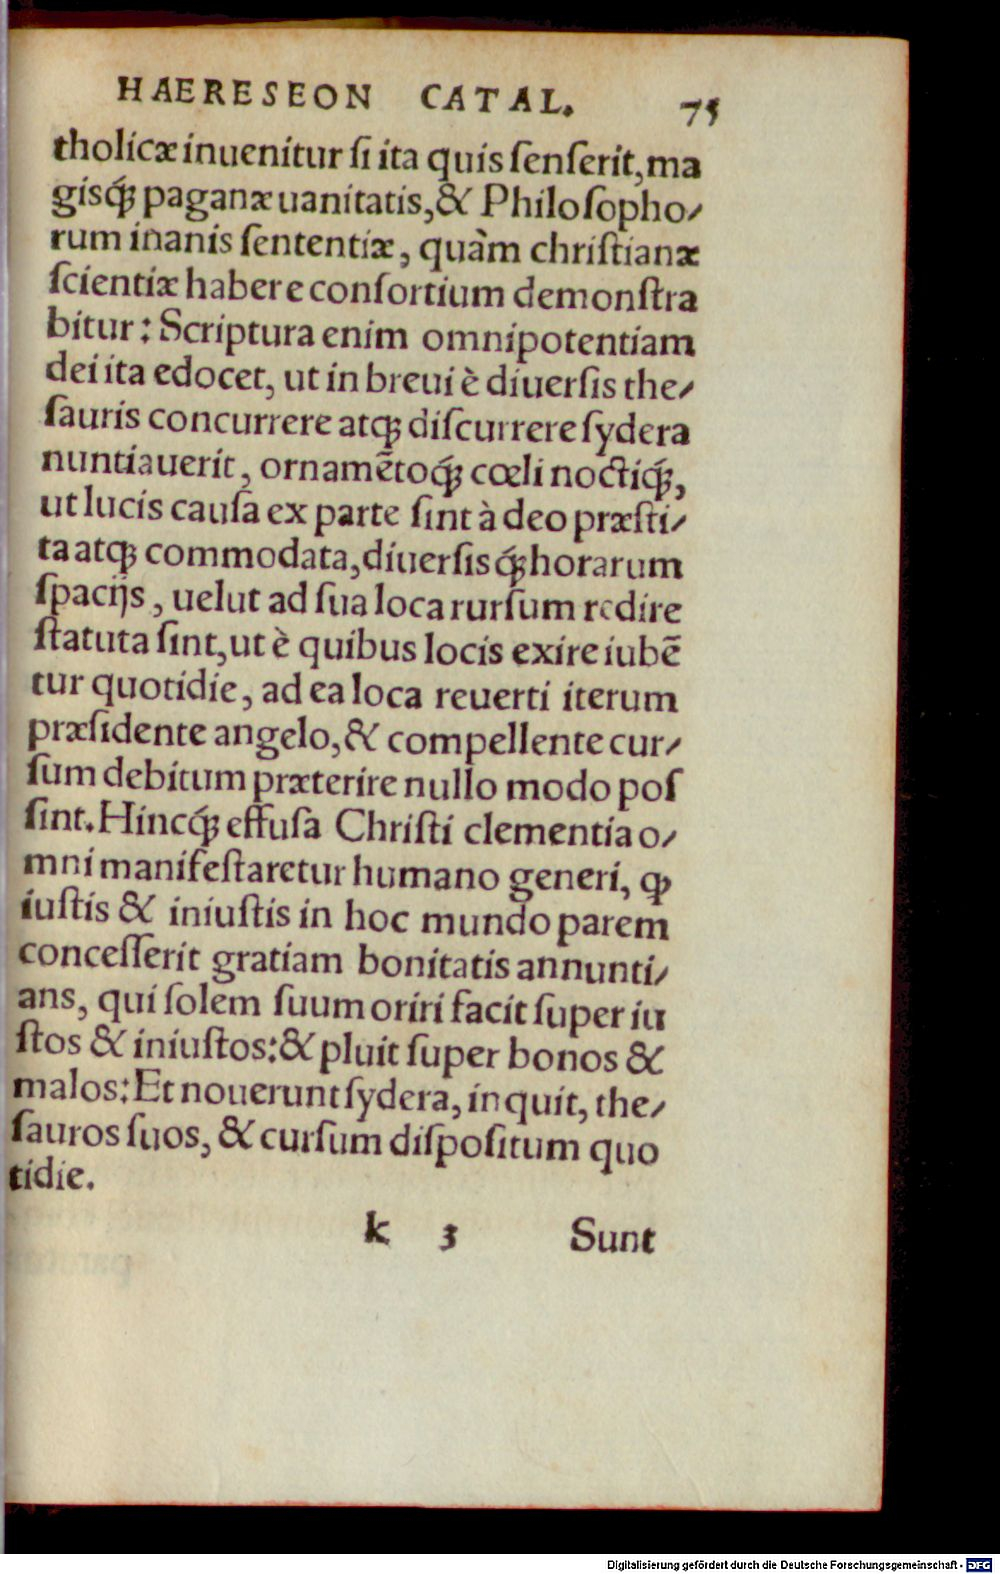 HAERESEON CATAL. 75
tholicæ inuenitur ſi ita quis ſenſerit, ma
gisq́ꝫ paganæ uanitatis, & Philoſopho⸗
rum inanis ſententiæ, quàm chriſtianæ
ſcientiæ habere conſortium demonſtra
bitur: Scriptura enim omnipotentiam
dei ita edocet, ut in breui è diuerſis the⸗
ſauris concurrere atqꝫ diſcurrere ſydera
nuntiauerit, ornamẽtoq́ꝫ cœli noctiq́ꝫ,
ut lucis cauſa ex parte ſint à deo præſti⸗
ta atqꝫ commodata, diuerſisq́ꝫ horarum
ſpacijs, uelut ad ſua loca rurſum redire
ſtatuta ſint, ut è quibus locis exire iubẽ
tur quotidie, ad ea loca reuerti iterum
præſidente angelo, & compellente cur⸗
ſum debitum præterire nullo modo poſ
ſint. Hincq́ꝫ effuſa Chriſti clementia o⸗
mni manifeſtaretur humano generi, ꝙ
iuſtis & iniuſtis in hoc mundo parem
conceſſerit gratiam bonitatis annunti⸗
ans, qui ſolem ſuum oriri facit ſuper iu
ſtos & iniuſtos: & pluit ſuper bonos &
malos: Et nouerunt ſydera, inquit, the⸗
ſauros ſuos, & curſum diſpoſitum quo
tidie.
k 3 Sunt
Digitalisierung gefördert durch die Deutsche Forschungsgemeinschaft - DFG